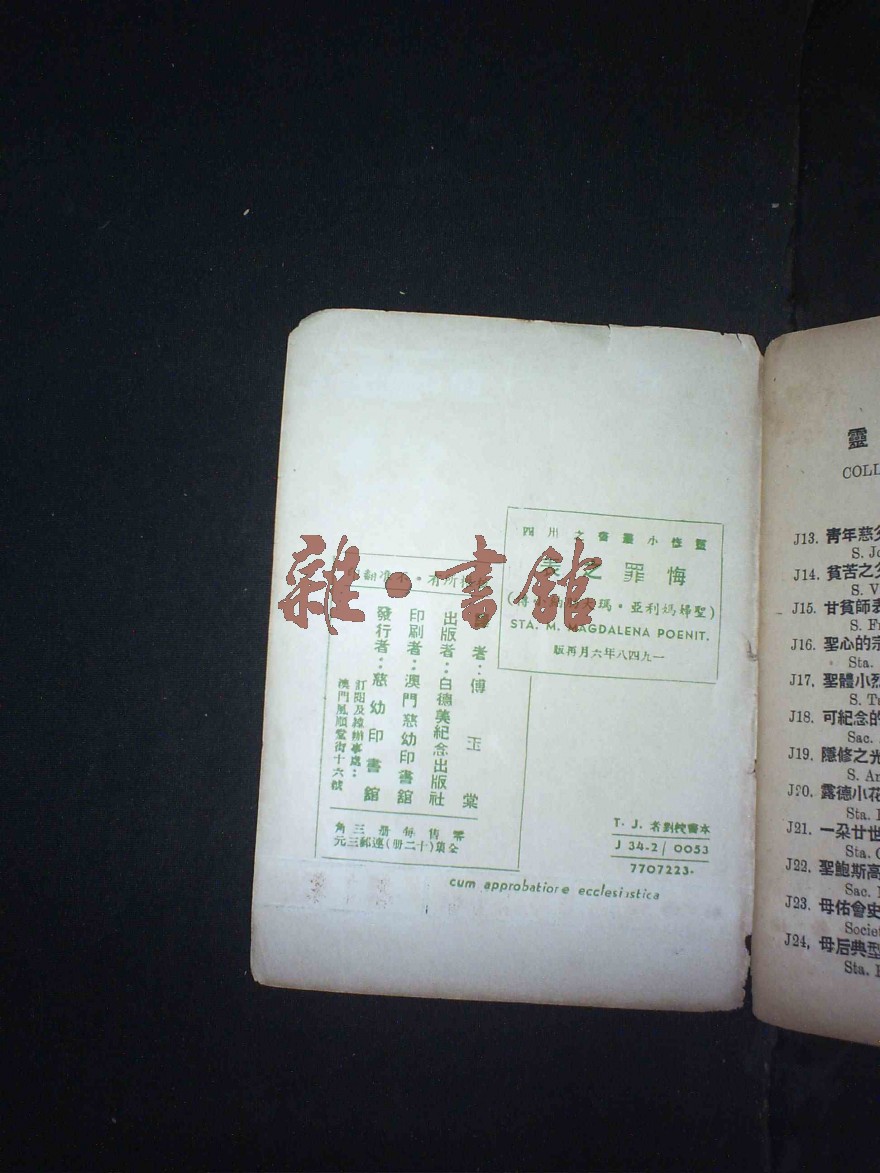 靈修小叢書之卅四
悔罪之表
(聖婦瑪利亞・瑪
STA. M. MAGDALENA POENIT.
一九四八年六月再版
者：傅玉棠
出版者：白德美紀念出版社
印刷者：澳門慈幼印書館
發行者：慈幼印書館
訂閱及總辦事處：
澳門風順堂街十六號
零售每册三角
全集(十二册)連郵三元
本書校對者 T. J.
J 34-2/ 0053
7707223.
cum approbatione ecclesiastica
雜・書館
靈
COLL
J13. 青年慈父
S. Jo
J14. 貧苦之父
S. V
J15. 甘貧師表
S. Fr
J16. 聖心的宗
Sta.
J17. 聖體小烈
S. Ta
J18. 可紀念的
Sac.
J19. 隱修之光
S. An
J20. 露德小花
Sta.
J21. 一朶廿世
Sta. 
J22. 聖鮑斯高
Sac.
J23. 母佑會史
Societ
J24. 母后典型
Sta.